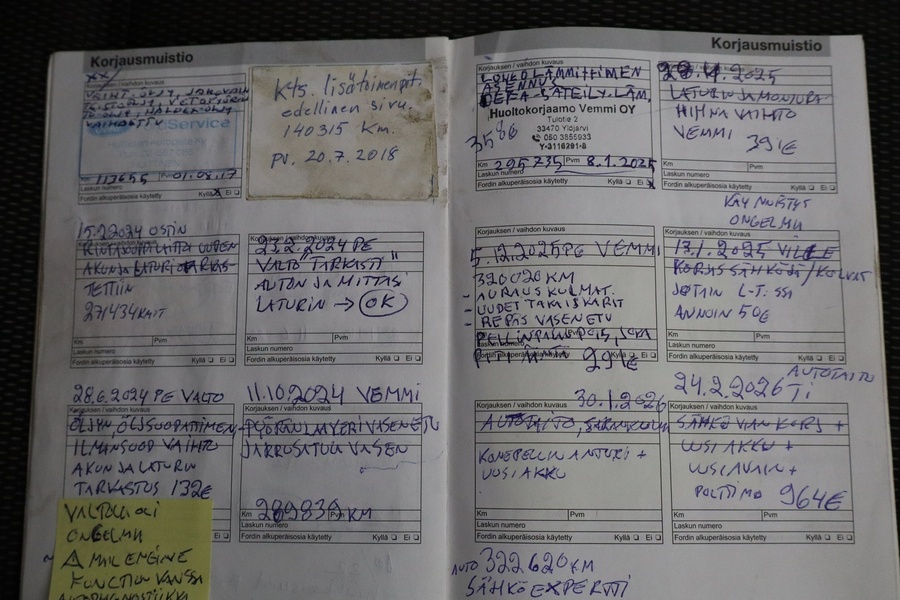 Korjausmuistio
XX
Korjauksen / vaihdon kuvaus
VAIHDETTU
Service
Km 113655 Pvm 01.08.17
Laskun numero
Fordin alkuperäisosia käytetty Kyllä Ei
kts. lisätoimenpit.
edellinen sivu.
140315 Km.
pv. 20.7.2018
15.2.2024 OSTIN
UUDEN
AKUN JA LATURI TARKAS-
TETTIIN
271434KAIT
Pvm
Laskun numero
Fordin alkuperäisosia käytetty Kyllä Ei
23.2.2024 PE
VALTO "TARKASTI"
AUTON JA MITTASI
LATURIN → OK
Km Pvm
Laskun numero
Fordin alkuperäisosia käytetty Kyllä Ei
28.6.2024 PE VALTO
Korjauksen / vaihdon kuvaus
ÖLJYN, ÖLJSUODATTIMEN,
ILMANSUOD VAIHTO
AKUN JA LATURIN
TARKASTUS 132€
VALTOLLA OLI
ONGELMA
⚠ MAIL ENGINE
FUNCTION VANSSA
11.10.2024 VEMMI
Korjauksen / vaihdon kuvaus
PYÖRÄNLAAKERI VASEN ETU
JARRUSATULA VASEN
289839 KM
Pvm
Laskun numero
Fordin alkuperäisosia käytetty Kyllä Ei
Korjausmuistio
Korjauksen / vaihdon kuvaus
LOHKOLÄMMITTIMEN
ASENNUS
DEFA SÄTEILY.LÄM.
Huoltokorjaamo Vemmi OY
Tulotie 2
33470 Ylöjärvi
050 3855933
Y-3116291-8
358€
Km 295735 Pvm 8.1.2025
Laskun numero
Fordin alkuperäisosia käytetty Kyllä Ei X
28.4.2025
LATURIN JA MONIURA
HIHNA VAIHTO
VEMMI
391€
Km Pvm
Laskun numero
Fordin alkuperäisosia käytetty Kyllä Ei
Korjauksen / vaihdon kuvaus
5.12.2025 PE VEMMI
320020 KM
- AURAUS KULMAT.
- UUDET TAKAISKARIT
- REPÄS VASEN ETU
291€
KÄYNNISTYS
ONGELMA
Korjauksen / vaihdon kuvaus
13.1.2025 VILLE
KORJAS SÄHKÖJÄ/KOLVAS
JOTAIN L-T:SSÄ
ANNOIN 50€
Km Pvm
Laskun numero
Fordin alkuperäisosia käytetty Kyllä Ei
30.1.2026
Korjauksen / vaihdon kuvaus
AUTOTAITO,
KONEPELLIN ANTURI +
UUSI AKKU
Km Pvm
Laskun numero
Fordin alkuperäisosia käytetty Kyllä Ei
AUTO 322620 KM
SÄHKÖEXPERTTI
AUTOTAITO
24.2.2026 TI
Korjauksen / vaihdon kuvaus
SÄHKÖ VAN KORJ +
UUSI AKKU +
UUSI AVAIN +
POLTTIMO 964€
Km Pvm
Laskun numero
Fordin alkuperäisosia käytetty Kyllä Ei